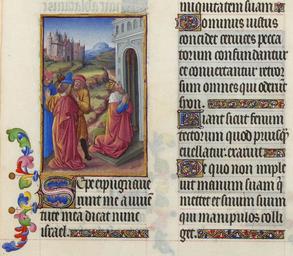 Sepe expugnaue
runt me a iuuē
tute mea dicat nunc
israel.
iniquitatem suam.
Dominus iustus
concidet ceruices pecca
torum confundantur
et conuertantur retror
sum omnes qui oderūt
syon.
Fiant sicut fenum
tectorum quod priusq̄
euellatur exaruit.
De quo non imple
uit manum suam q̄
metet et sinum suum
qui manipulos colli
get.